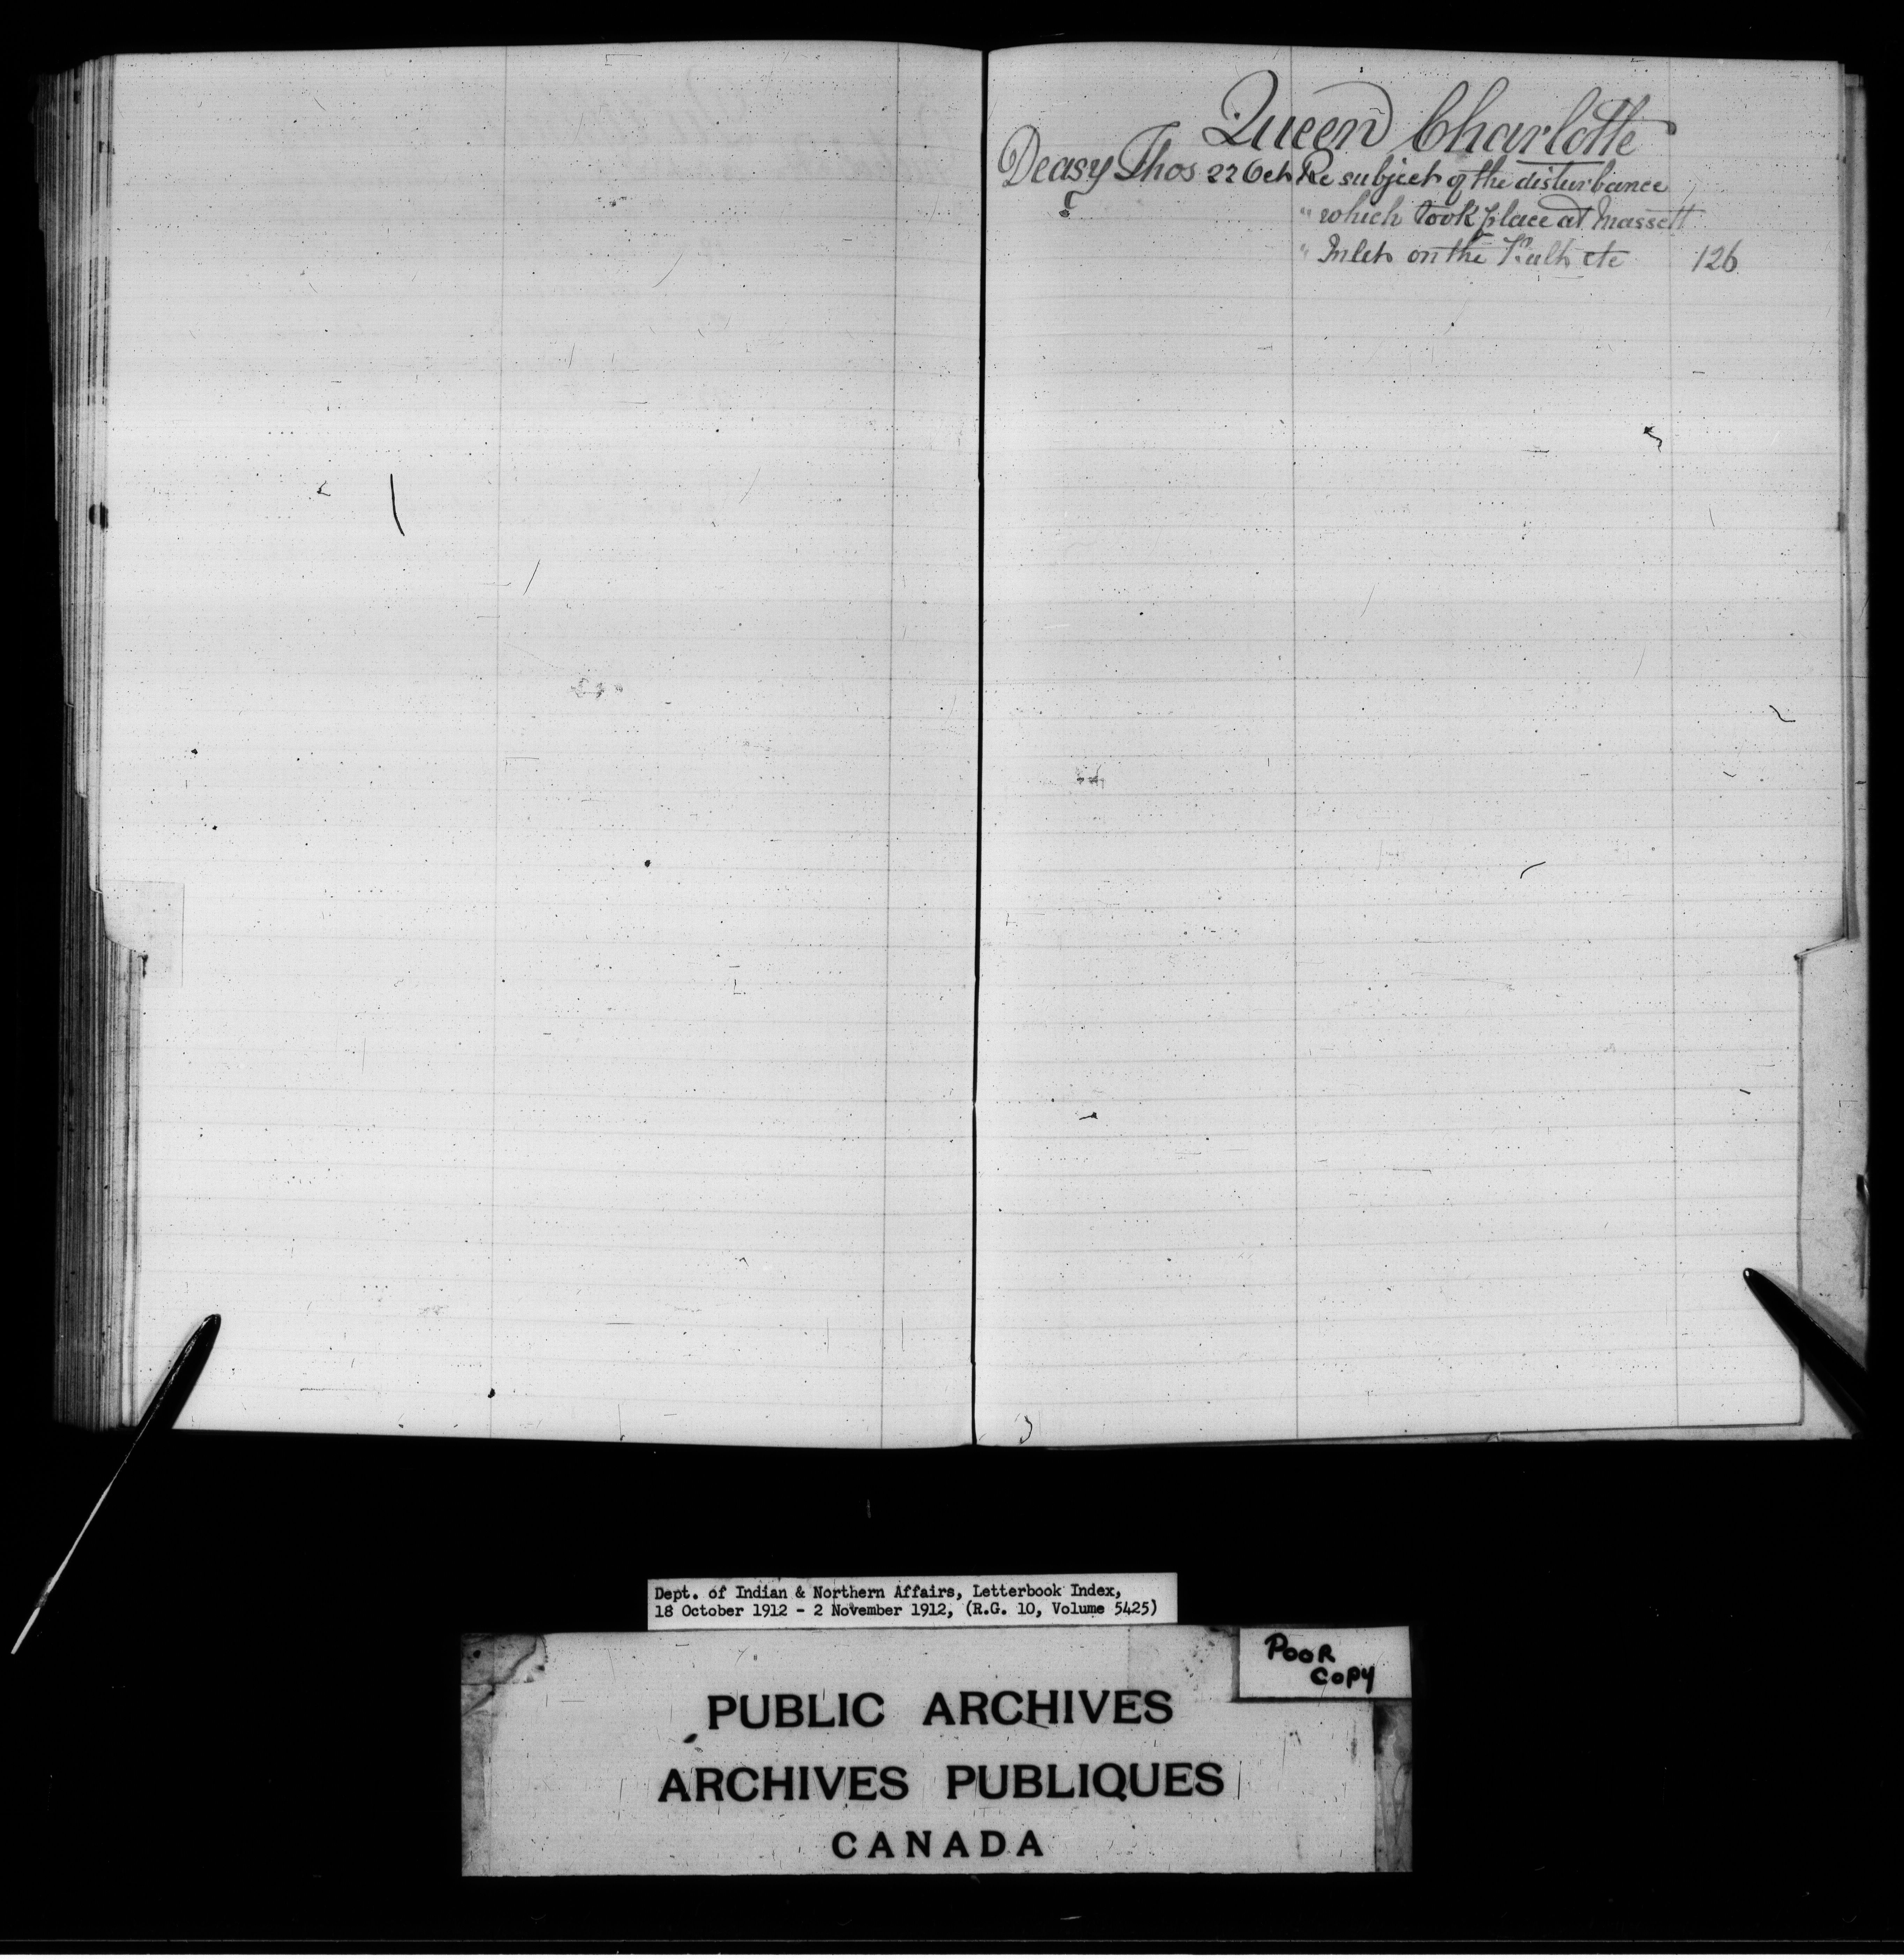 Queen Charlotte
Deasy Thos 22 Oct Re subject of the disturbance
" which took place at Massett
" Inlet on the ult etc 126
Dept. of Indian & Northern Affairs, Letterbook Index,
18 October 1912 - 2 November 1912, (R.G. 10, Volume 5425)
POOR
COPY
PUBLIC ARCHIVES
ARCHIVES PUBLIQUES
CANADA